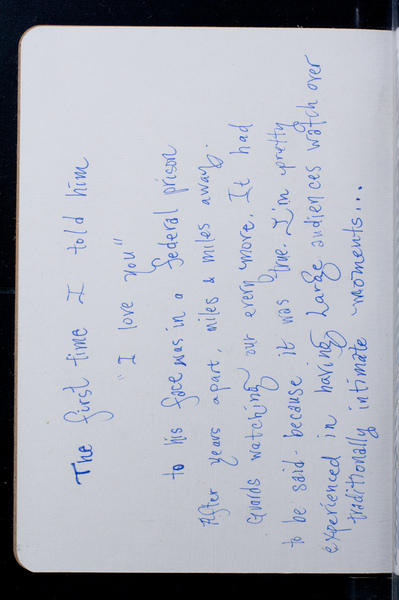 The first time I told him
"I love you"
to his face was in a federal prison
After years apart, miles & miles away.
Guards watching our every move. It had
to be said - because it was true. I'm pretty
experienced in having Large audiences watch over
traditionally intimate moments...